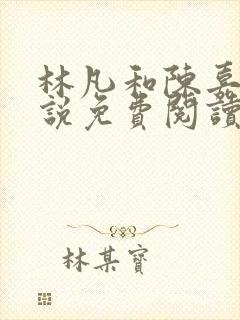 林凡和陳嘉
說免費閱讀
林某寶